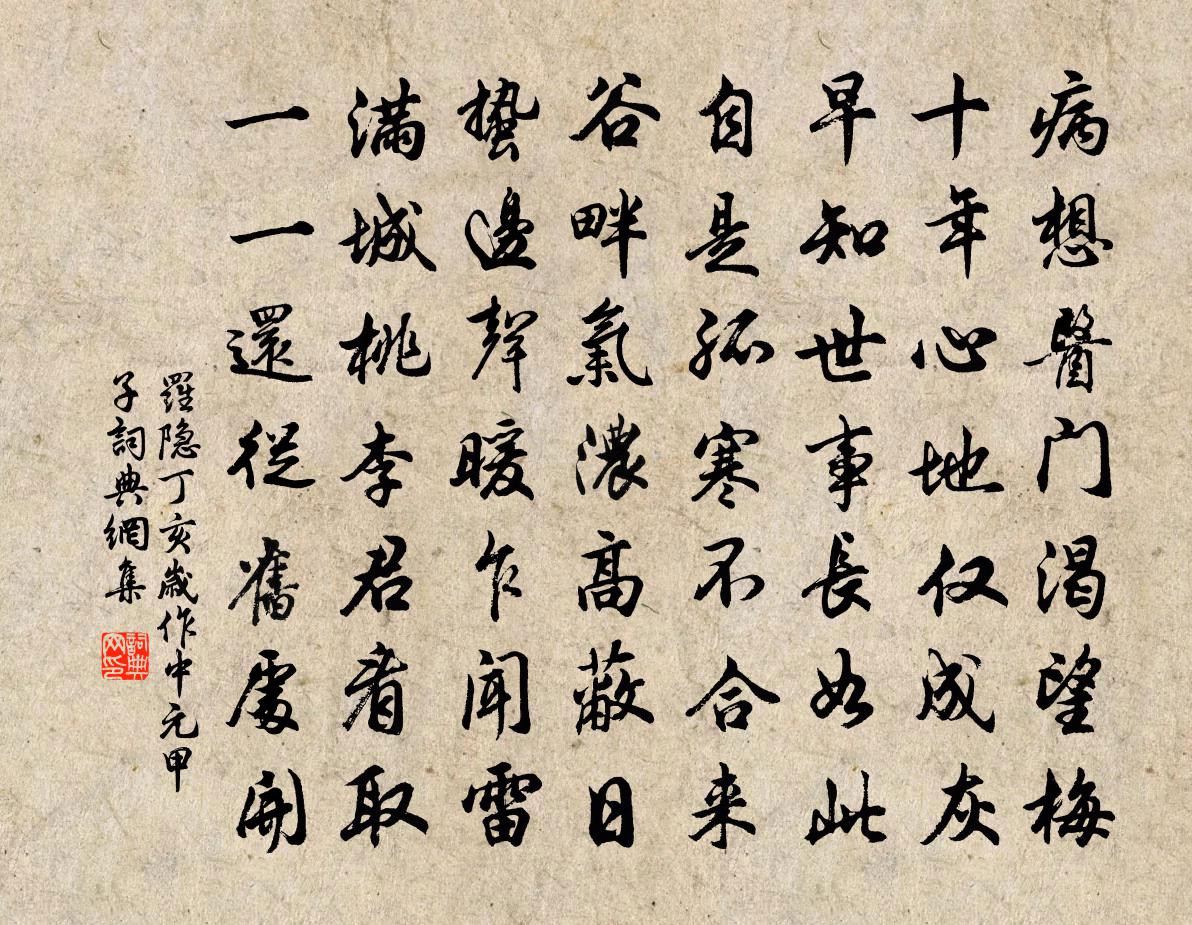 病想醫門渴望梅
十年心地仅成灰
早知世事長如此
自是孤寒不合来
谷畔氣濃高蔽日
蟄邊聲暖乍聞雷
滿城桃李君看取
一一還從舊處開
羅隐丁亥歲作中元甲
子詞典網集
詞典
网印